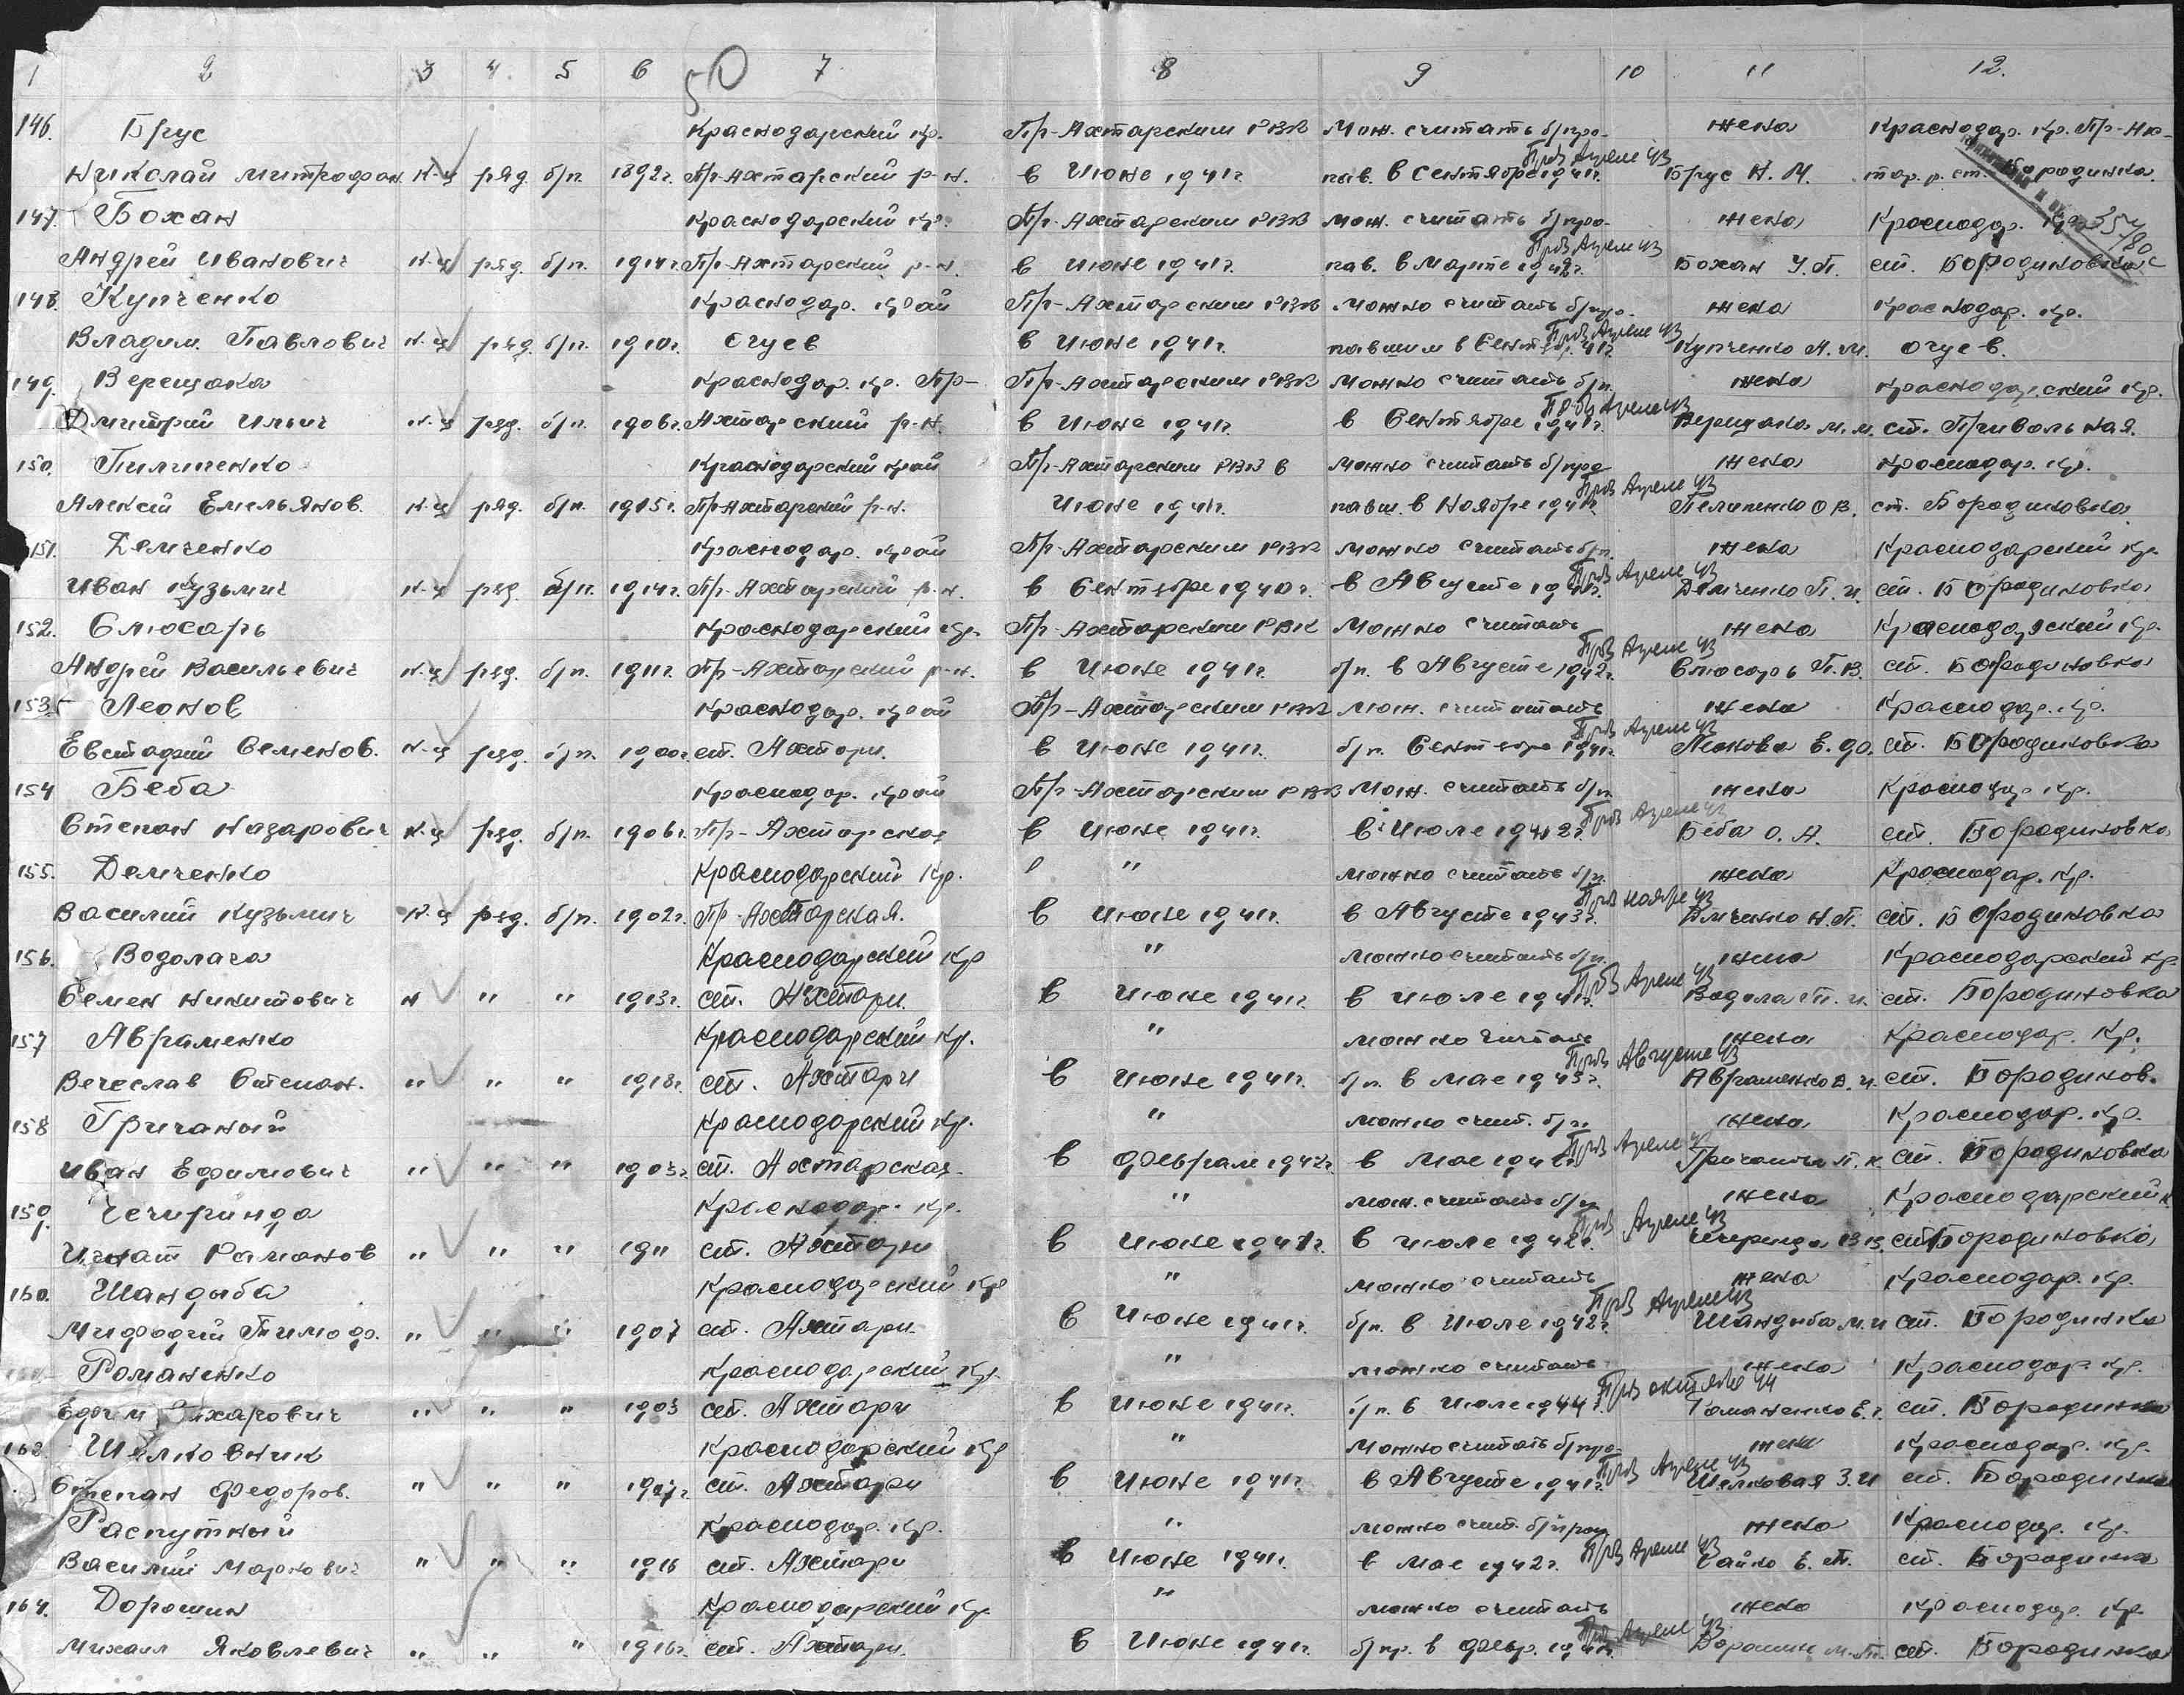 1 2 3 4 5 6 50 7 8 9 10 11 12.
146. Брус Краснодарский кр. Пр-Ахтарским РВК Мож. считать б/про- жена Краснодар. кр. Пр-Ах-
Николай Митрофан. к-ц ряд. б/п. 1892г. Пр-Ахтарский р-н. в Июне 1941г. пав. в Сентябре 1941г. Прв Апреле 43 Брус Н. М. тар. р. ст. Бородинка.
147. Бохан Краснодарский кр. Пр-Ахтарским РВК мож. считать б/про- жена Краснодар. кр.
Андрей Иванович к-ц ряд. б/п. 1914г. Пр-Ахтарский р-н. в Июне 1941г. пав. в Марте 1942г. Прв Апреле 43 Бохан У. П. ст. Бородиновка
148. Купченко Краснодар. край Пр-Ахтарским РВК можно считать б/про- жена Краснодар. кр.
Владим. Павлович к-ц ряд. б/п. 1910г. Очуев в Июне 1941г. павшим в Сентябр. 41г. Прв Апреле 43 Купченко А. М. Очуев.
149. Верещака Краснодар. кр. Пр- Пр-Ахтарским РВК можно считать б/п. жена Краснодарский кр.
Дмитрий Ильич к-ц ряд. б/п. 1906г. Ахтарский р-н. в Июне 1941г. в Сентябре 1941г. Прв Апреле 43 Верещака М. М. ст. Привольная.
150. Пилипенко Краснодарский край Пр-Ахтарским РВК в можно считать б/про- жена Краснодар. кр.
Алексей Емельянов. к-ц ряд. б/п. 1915г. Пр-Ахтарский р-н. Июне 1941г. павш. в Ноябре 1941г. Прв Апреле 43 Пелипенко О В. ст. Бородиновка.
151. Демченко Краснодар. край Пр-Ахтарским РВК можно считать б/п. жена Краснодарский кр.
Иван Кузьмич к-ц ряд. б/п. 1914г. Пр-Ахтарский р-н. в Сентябре 1940г. в Августе 1941г. Прв Апреле 43 Демченко П. И. ст. Бородиновка
152. Слюсарь Краснодарский кр. Пр-Ахтарским РВК Можно считать жена Краснодарский кр.
Андрей Васильевич к-ц ряд. б/п. 1911г. Пр-Ахтарский р-н. в Июне 1941г. б/п. в Августе 1942г. Прв Апреле 43 Слюсарь П. В. ст. Бородиновка
153. Леонов Краснодар. край Пр-Ахтарским РВК мож. считать жена Краснодар. кр.
Евстафий Семенов. к-ц ряд. б/п. 1900г. ст. Ахтари. в Июне 1941г. б/п. Сентябре 1941г. Прв Апреле 43 Леонова Е. Ф. ст. Бородиновка
154 Беба Краснодар. край Пр-Ахтарским РВК Мож. считать б/п жена Краснодар кр.
Степан Назарович к-ц ряд. б/п. 1906г. Пр-Ахтарская в Июне 1941г. в Июле 1942г. Прв Апреле 43 Беба О. А. ст. Бородиновка
155. Демченко Краснодарский кр. " можно считать б/п. жена Краснодар. кр.
Василий Кузьмич к-ц ряд. б/п. 1902г. Пр-Ахтарская. в Июне 1941г. в Августе 1943г. Прв ноябре 43 Демченко Н. П. ст. Бородиновка
156. Водолага Краснодарский кр " можно считать б/п. жена Краснодарский кр.
Семен Никитович к " " 1913г. ст. Ахтари. в Июне 1941г. в Июле 1941г. Прв Апреле 43 ст. Бородиновка
157 Авраменко Краснодарский кр. " можно считать жена Краснодар. кр.
Вечеслав Степан. " " " 1918г. ст. Ахтари в Июне 1941г. б/п. в мае 1943г. Прв Августе 43 Авраменко В. И. ст. Бородинов.
158 Гричаный Краснодарский кр. " можно счит. б/п. жена Краснодар. кр.
Иван Ефимович " " " 1903г. ст. Ахтарская. в Феврале 1942г. в Мае 1942г. Прв Апреле ст. Бородиновка
159. Чечиринда Краснодар. кр. " мож. считать б/п жена Краснодарский к
Игнат Романов " " " 1911 ст. Ахтари в Июне 1941г. в Июле 1942г. Прв Апреле 43 ст. Бородиновка
160. Шандыба Краснодарский кр " можно считать жена Краснодар. кр.
Мифодий Тимоф. " " " 1907 ст. Ахтари. в Июне 1941г. б/п. в Июле 1942г. Прв Апреле 43 Шандыба М. И ст. Бородинка
Романенко Краснодарский кр. " можно считать жена Краснодар кр.
Ефим Захарович " " " 1903 ст. Ахтари в Июне 1941г. б/п. в Июле 1944г. Прв октябре 44 Романенко Е. ст. Бородинка
162. Шелковник Краснодарский кр " Можно считать б/про- жена Краснодар. кр.
Степан Федоров. " " " ст. Ахтари в Июне 1941г. в Августе 1941г. Прв Апреле 43 Шелковая З. И ст. Бородинка
Распутный Краснодар. кр. " можно счит. б/проп жена Краснодар. кр.
Василий Маркович " " " 1916 ст. Ахтари в Июне 1941г. в Мае 1942г. Прв Апреле 43 Сайко Е. П. ст. Бородинка
164. Дорошин Краснодарский кр. " можно считать жена Краснодар. кр.
Михаил Яковлевич " " " 1916г. ст. Ахтари. в Июне 1941г. б/пр. в Февр. Прв Апреле 43 Дорошин М. П. ст. Бородинка